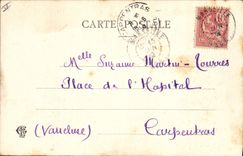 CARTE POSTALE
CARPENTRAS
Melle Suzanne Martin-Tourres
Place de l'Hopital
(Vaucluse) Carpentras